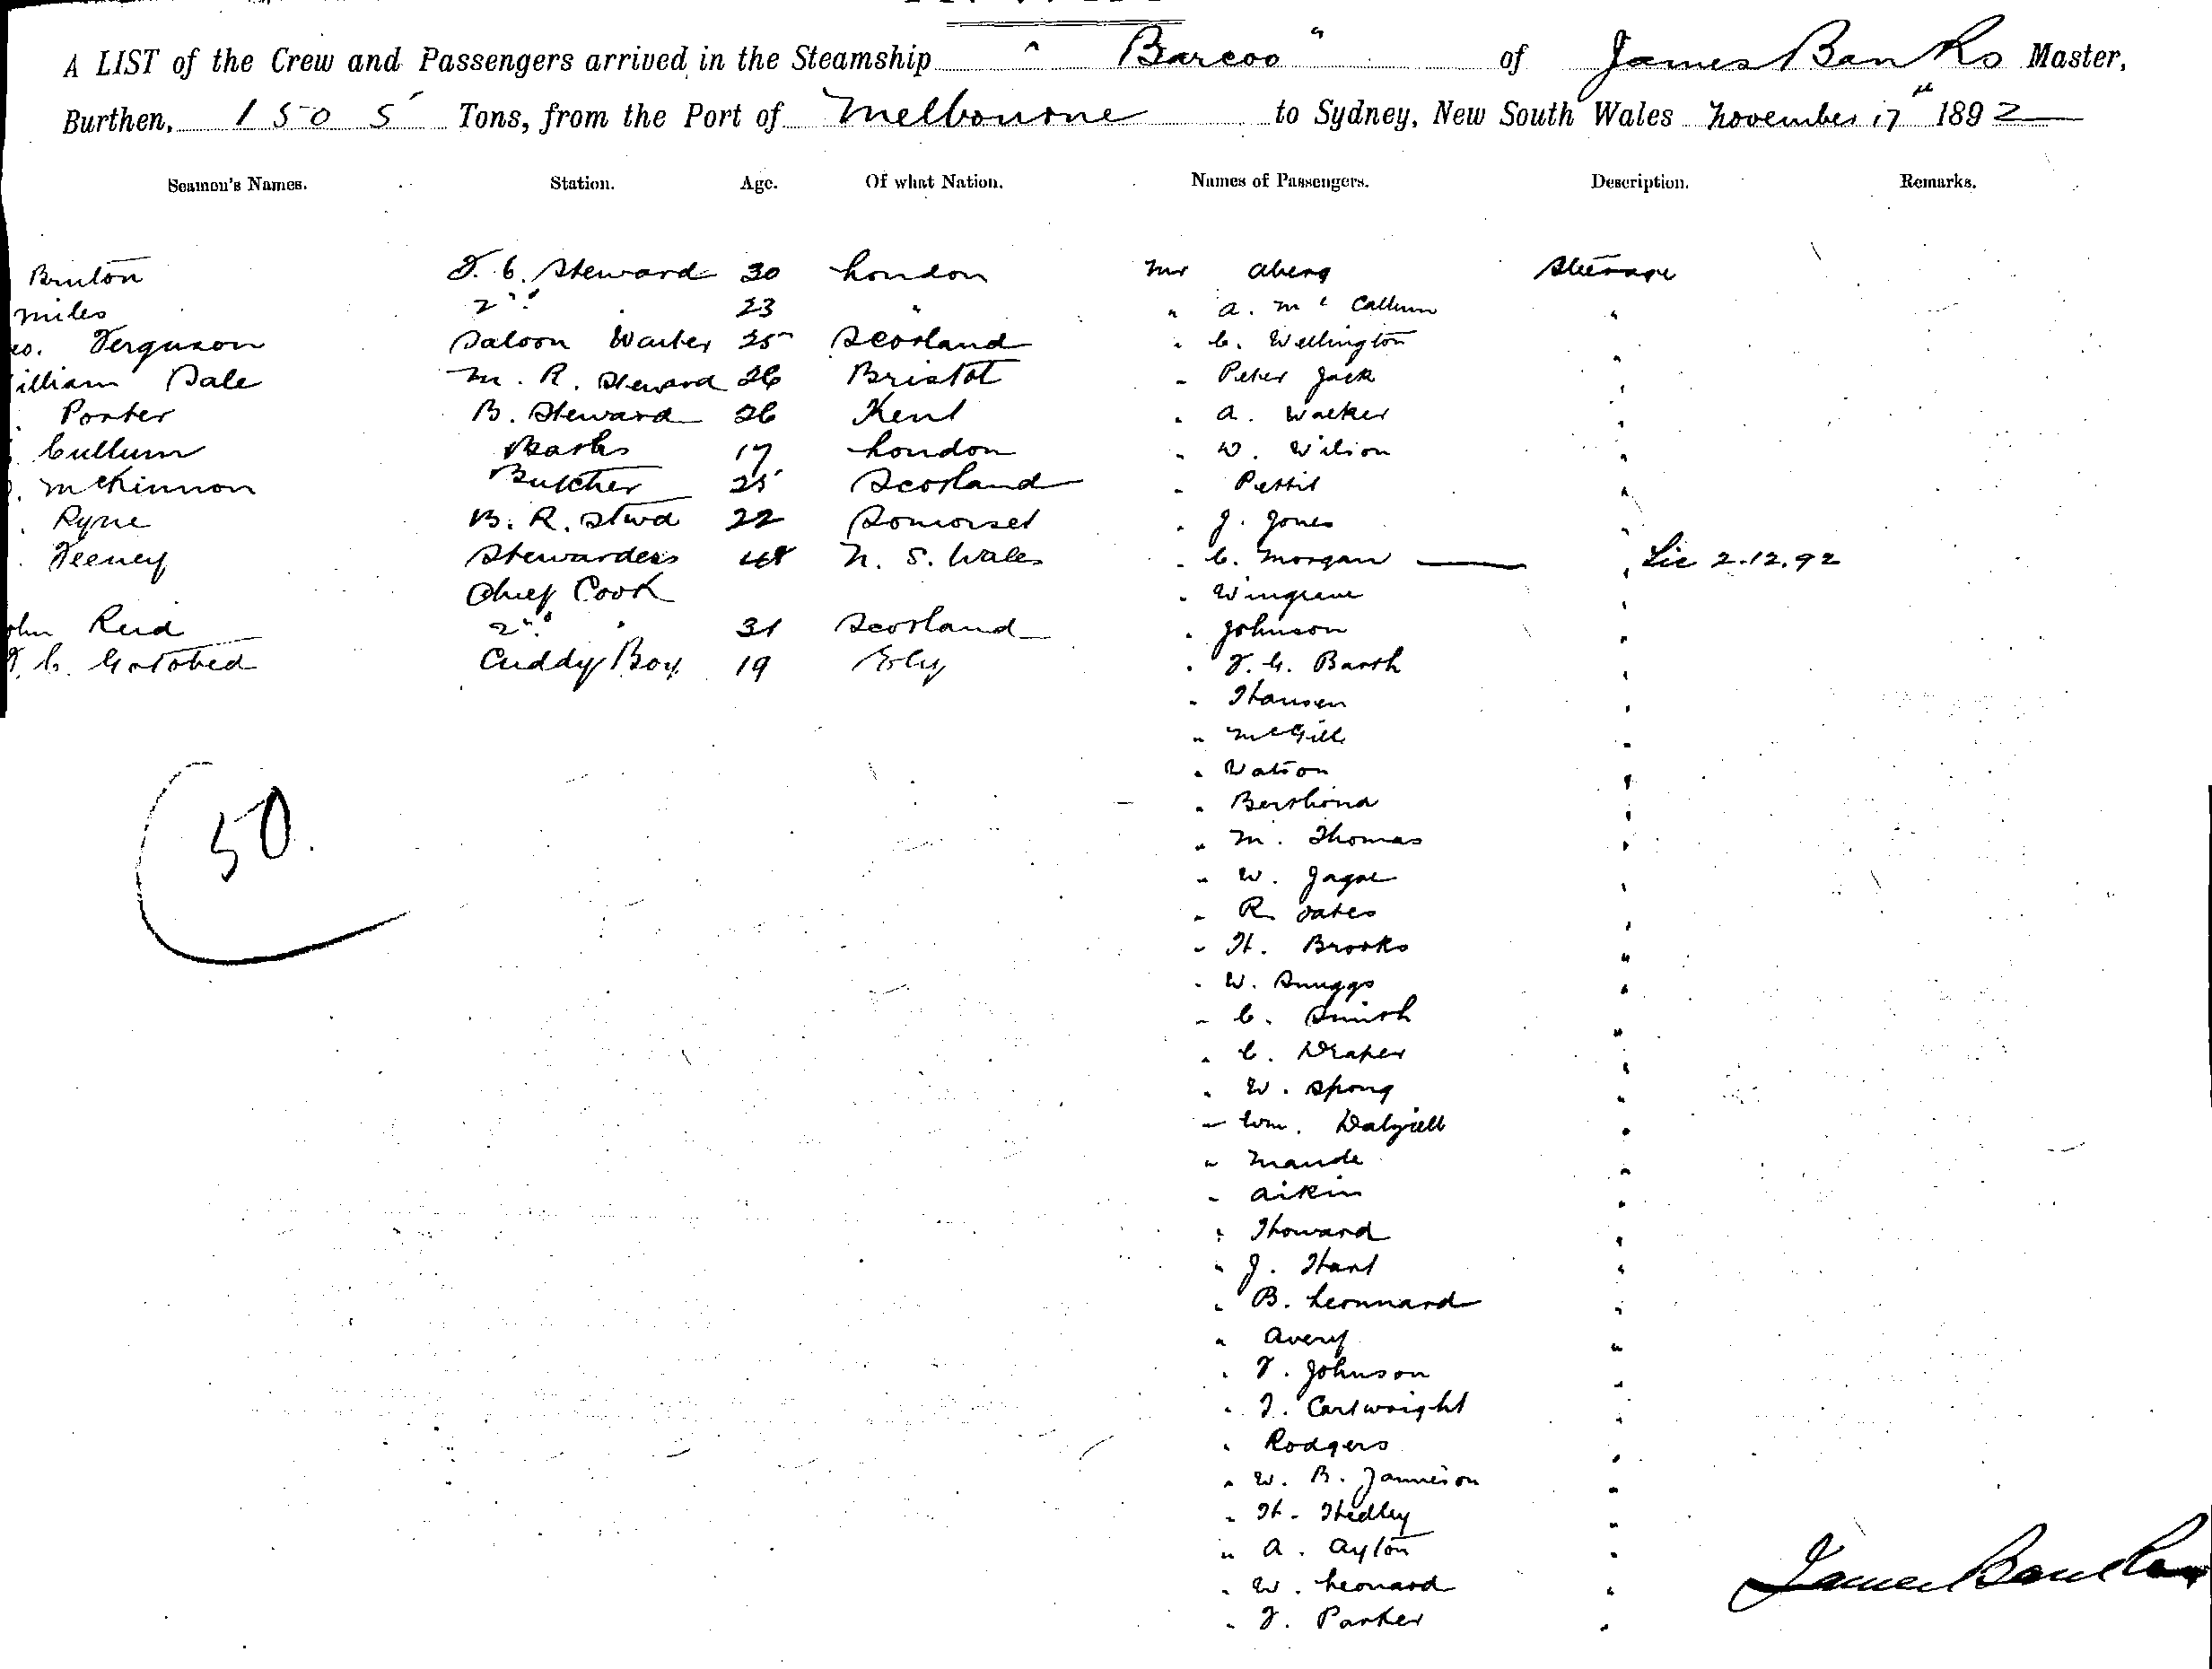 A LIST of the Crew and Passengers arrived in the Steamship " Barcoo " of James Banks Master,
Burthen, 1505 Tons, from the Port of Melbourne to Sydney, New South Wales November 17th 1892
Seamen's Names. Station. Age. Of what Nation. Names of Passengers. Description. Remarks.
Bruton F. C. Steward 30 London Mr Aberg Steerage
Miles 2nd " 23 " " A. McCallum "
Ferguson Saloon Waiter 25 Scotland " C. Wellington "
illiam Sale M. R. Steward 26 Bristol " Peter Jack "
Porter B. Steward 26 Kent " A. Walker "
Cullum 17 London " W. Wilson "
McKinnon Butcher 25 Scotland " Pettit "
Pyne B. R. Stwd 22 Somerset " J. Jones "
Feeney Stewardess 48 N. S. Wales " C. Morgan " Lic 2.12.92
Chief Cook " Wingrave "
ohn Reid 2nd " 31 Scotland " Johnson "
C. Gotobed Cuddy Boy 19 Ely " F. G. Barth "
" Hansen "
" McGill "
" Watson "
" "
50. " M. Thomas "
" W. "
" R. Oates "
" H. Brooks "
" W. Snuggs "
" C. Smith "
" C. Draper "
" W. Spong "
" Wm. Dalziell "
" Maude "
" Aikin "
" Howard "
" J. Hart "
" B. Leonnard "
" Avery "
" F. Johnson "
" T. Cartwright "
" Rodgers "
" W. B. Jamieson "
" H. Hedley "
" A. Ayton "
" W. Leonard "
" F. Parker "
James Banks